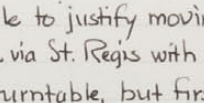 le to justify movi
via St. Regis with
urntable, but fir